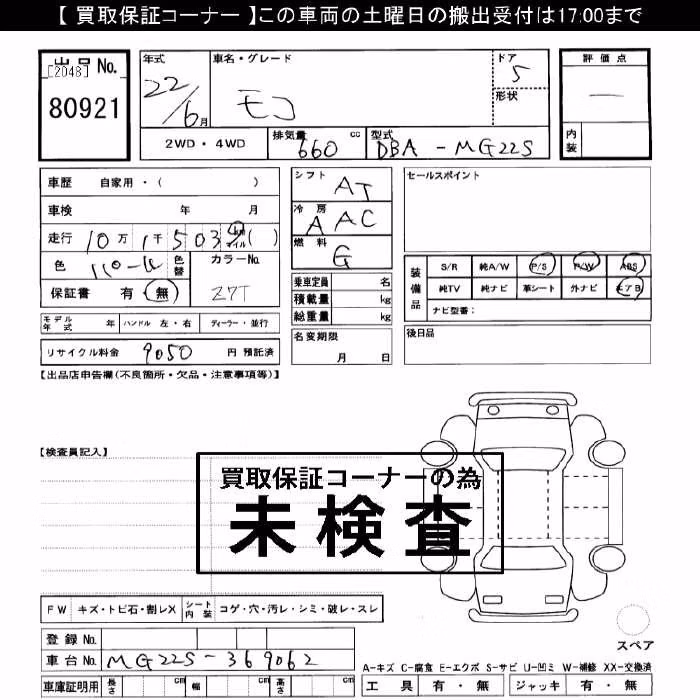 【 買取保証コーナー 】この車両の土曜日の搬出受付は17:00まで
出品 No.
[2048]
80921
年式
22/6月
車名・グレード
モコ
ドア
5
形状
評価点
内装
2WD・4WD
排気量 660 cc
型式 DBA-MG22S
車歴 自家用・( )
車検 年 月
走行 10万1千503 km マイル ( )
色
色替
カラーNo.
Z7T
保証書 有 無
シフト AT
冷房 AAC
燃料 G
乗車定員 名
積載量 kg
総重量 kg
セールスポイント
装備品
S/R 純A/W P/S P/W ABS
純TV 純ナビ 革シート 外ナビ エアB
ナビ型番:
モデル年式 年 ハンドル 左・右 ディーラー・並行
リサイクル料金 9050 円 預託済
名変期限
月 日
後日品
【出品店申告欄(不良箇所・欠品・注意事項等)】
【検査員記入】
買取保証コーナーの為
未検査
FW キズ・トビ石・割レX シート内装 コゲ・穴・汚レ・シミ・破レ・スレ
スペア
登録 No.
車台 No. MG22S-369062
車庫証明用 長さ cm 幅 cm 高さ cm
A-キズ C-腐食 E-エクボ S-サビ U-凹ミ W-補修 XX-交換済
工具 有・無 ジャッキ 有・無